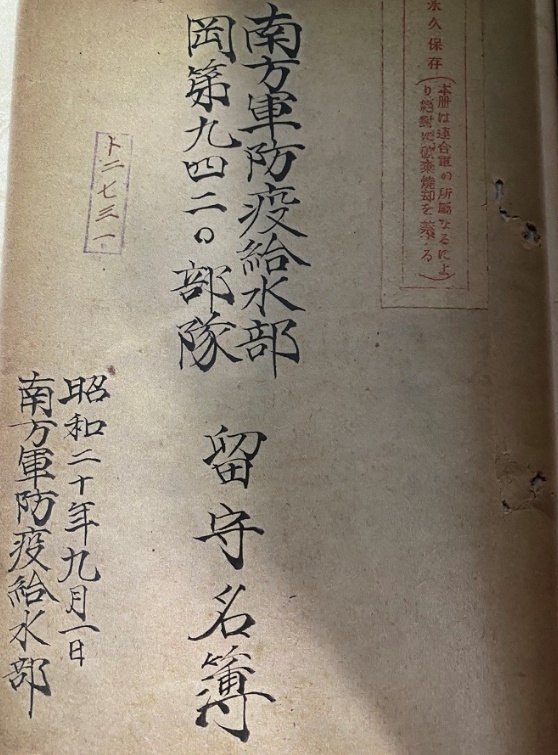 永久保存
(本冊は連合軍の所属なるによ
り絶対に破棄焼却を禁ずる)
南方軍防疫給水部
岡第九四二〇部隊
留守名簿
ト二七三一
昭和二十年九月一日
南方軍防疫給水部